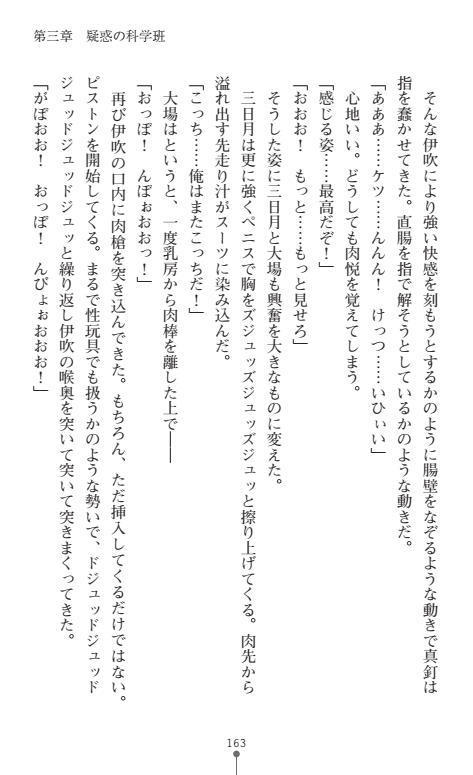 第三章　疑惑の科学班
そんな伊吹により強い快感を刻もうとするかのように腸壁をなぞるような動きで真釘は
指を蠢かせてきた。直腸を指で解そうとしているかのような動きだ。
「あああ……ケツ……んんん！　けっつ……いひぃい」
心地いい。どうしても肉悦を覚えてしまう。
「感じる姿……最高だぞ！」
「おおお！　もっと……もっと見せろ」
そうした姿に三日月と大場も興奮を大きなものに変えた。
三日月は更に強くペニスで胸をズジュッズジュッズジュッと擦り上げてくる。肉先から
溢れ出す先走り汁がスーツに染み込んだ。
「こっち……俺はまたこっちだ！」
大場はというと、一度乳房から肉棒を離した上で――
「おっぽ！　んぽぉおおっ！」
再び伊吹の口内に肉槍を突き込んできた。もちろん、ただ挿入してくるだけではない。
ピストンを開始してくる。まるで性玩具でも扱うかのような勢いで、ドジュッドジュッド
ジュッドジュッドジュッと繰り返し伊吹の喉奥を突いて突いて突きまくってきた。
「がぽおお！　おっぽ！　んぴょぉおおお！」
163